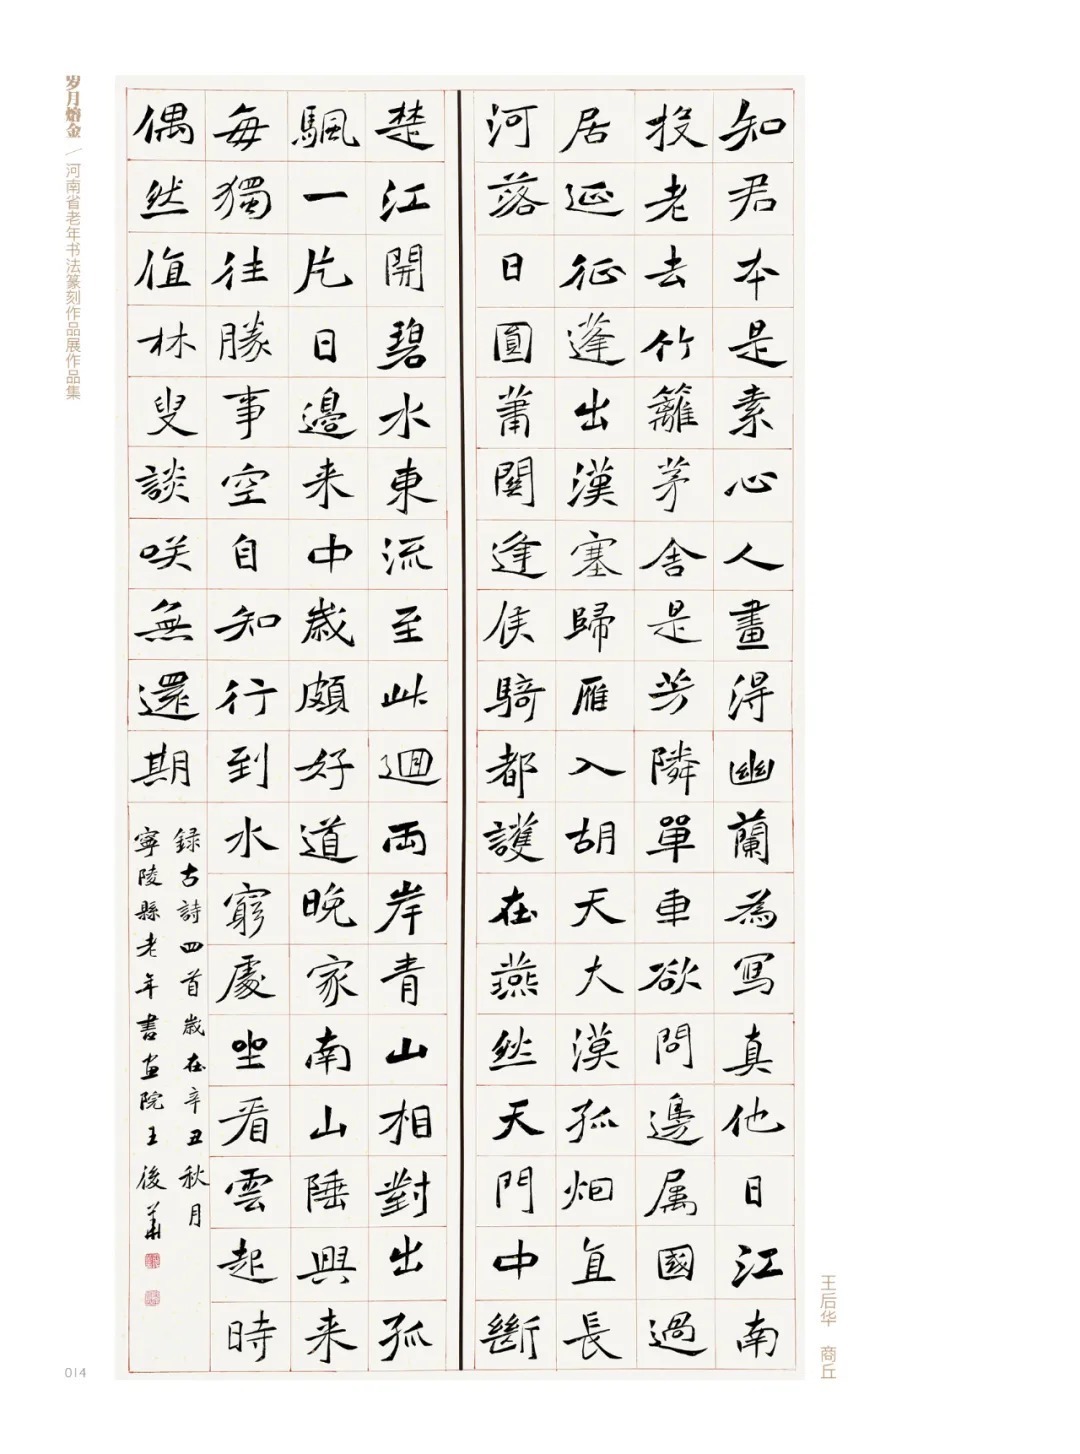 岁月熔金／河南省老年书法篆刻作品展作品集
知君本是素心人畫得幽蘭為寫真他日江南
投老去竹籬茅舍是芳隣單車欲問邊属國過
居延征蓬出漢塞歸雁入胡天大漠孤烟直長
河落日圓蕭關逢侯騎都護在燕然天門中斷
楚江開碧水東流至此迴兩岸青山相對出孤
颿一片日邊来中歲頗好道晚家南山陲興来
每獨往勝事空自知行到水窮處坐看雲起時
偶然值林叟談咲無還期
録古詩四首歲在辛丑秋月
寧陵縣老年書画院王後華
王后华 商丘
014